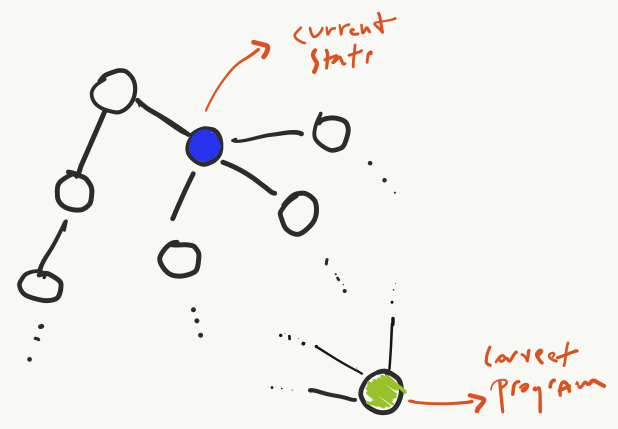 current
state
correct
program